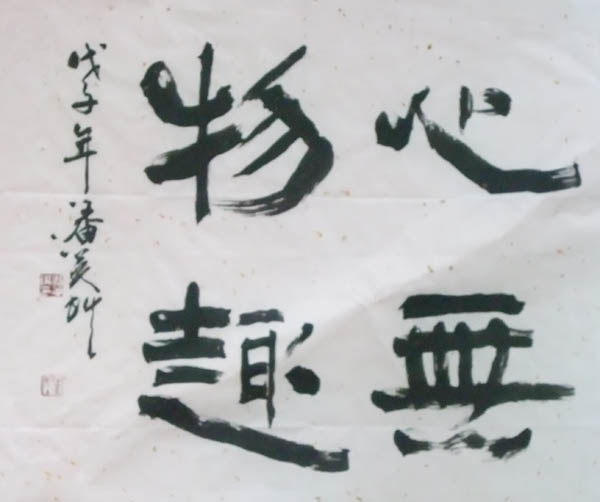 心無
物趣
戊子年潘